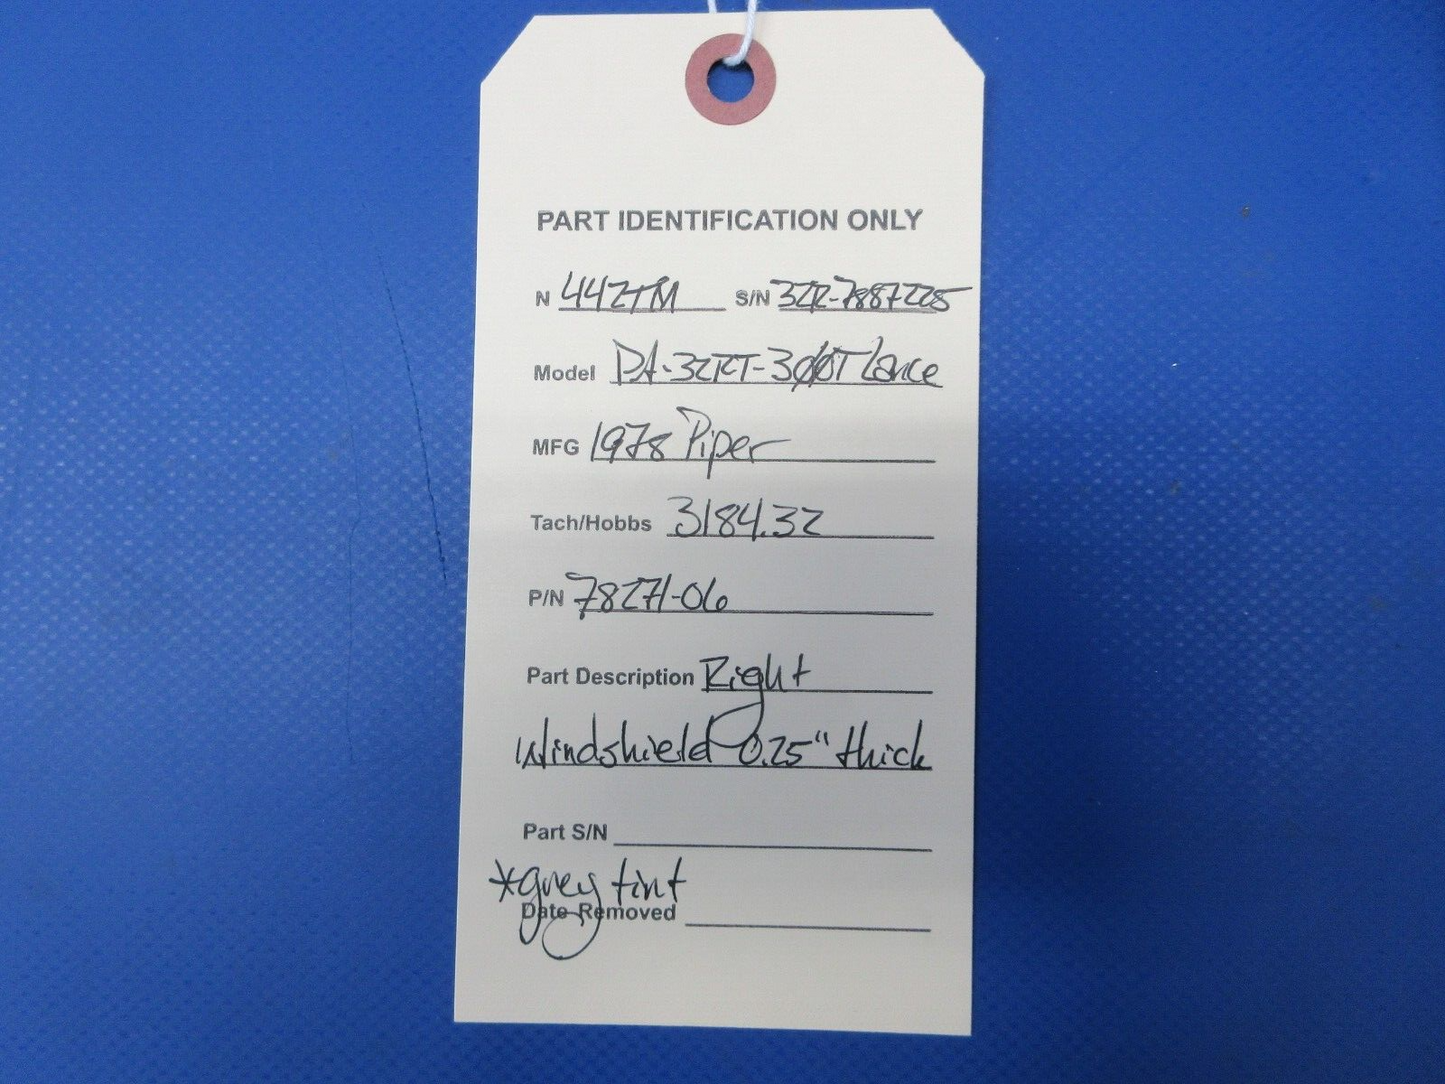 PART IDENTIFICATION ONLY
N 442TM S/N 32R-7887225
Model PA-32RT-300T Lance
MFG 1978 Piper
Tach/Hobbs 3184.32
P/N 78271-06
Part Description Right
Windshield 0.25" thick
Part S/N
*grey tint
Date Removed